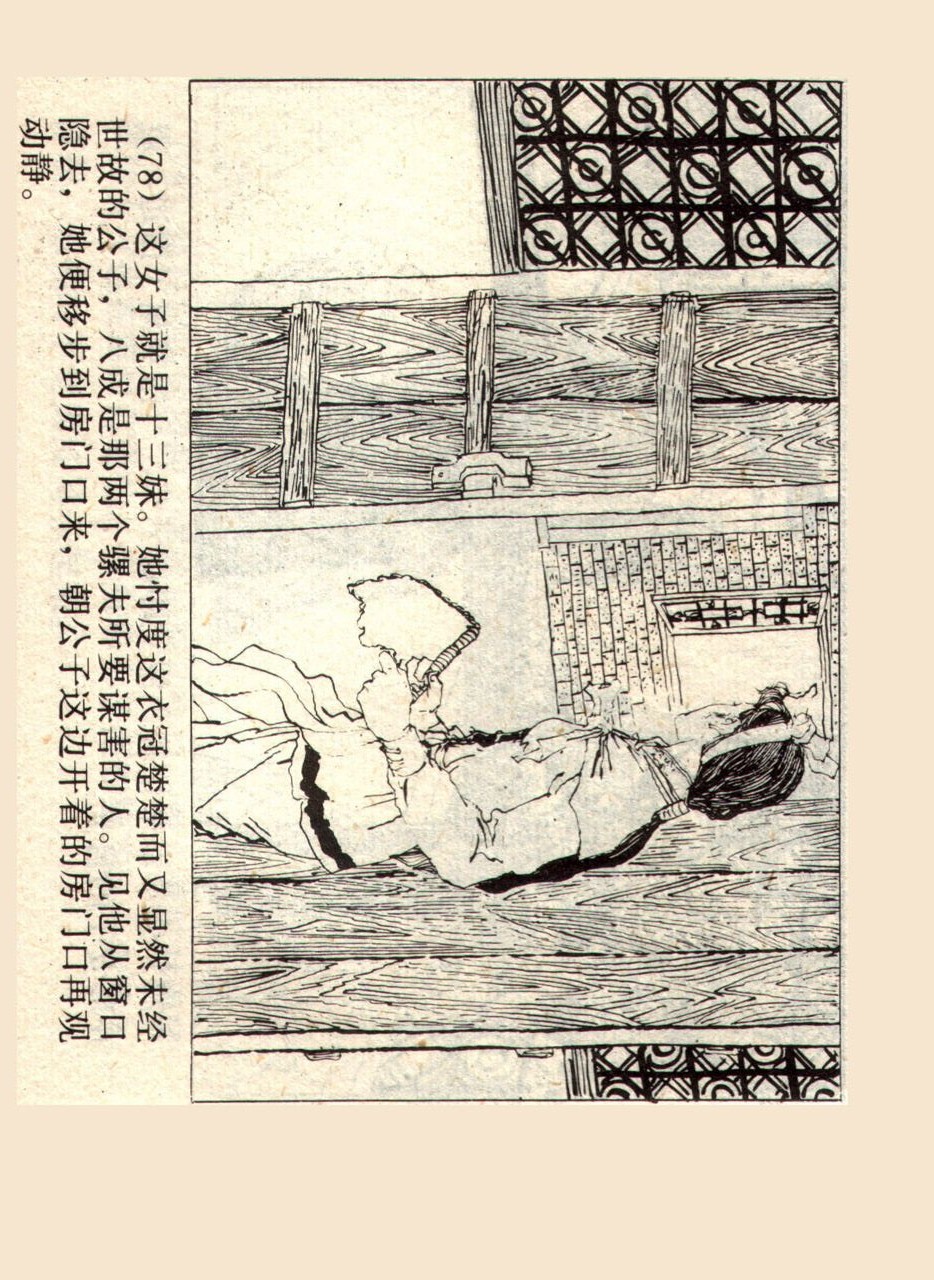 (78) 这女子就是十三妹。她忖度这衣冠楚楚而又显然未经
世故的公子，八成是那两个骡夫所要谋害的人。见他从窗口
隐去，她便移步到房门口来，朝公子这边开着的房门口再观
动静。